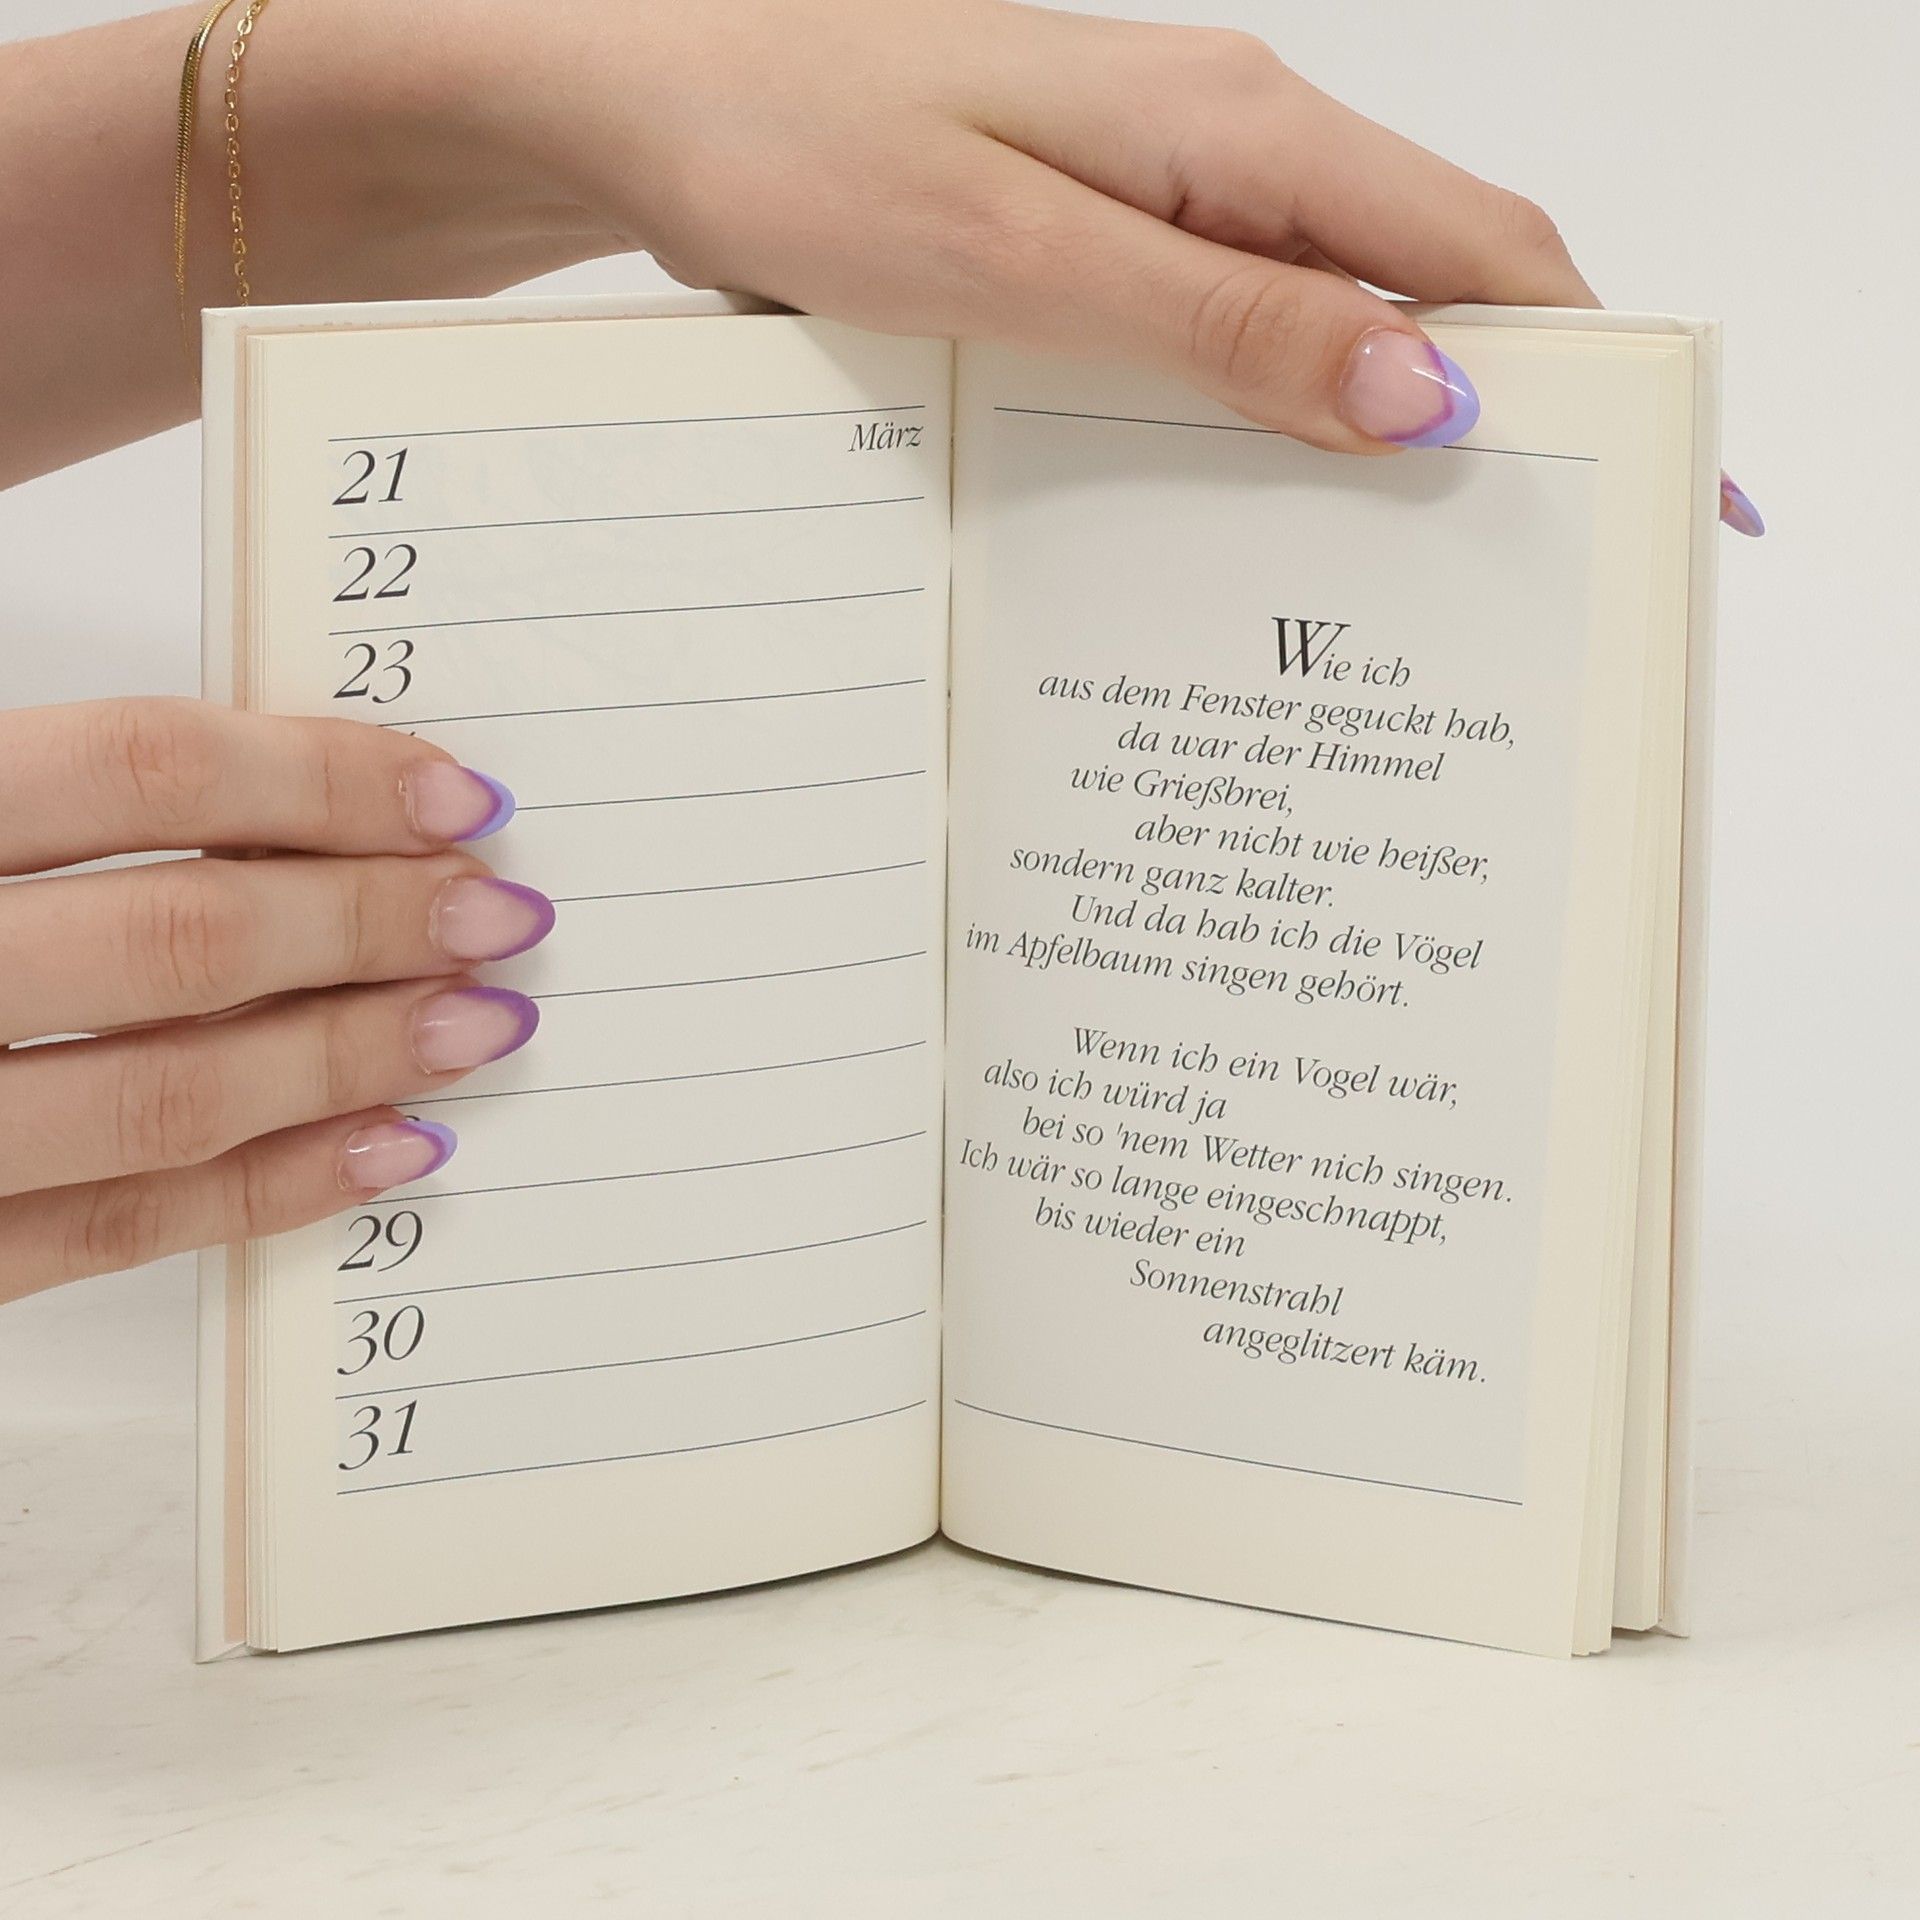 März
21
22
23
29
30
31
Wie ich
aus dem Fenster geguckt hab,
da war der Himmel
wie Grießbrei,
aber nicht wie heißer,
sondern ganz kalter.
Und da hab ich die Vögel
im Apfelbaum singen gehört.
Wenn ich ein Vogel wär,
also ich würd ja
bei so 'nem Wetter nich singen.
Ich wär so lange eingeschnappt,
bis wieder ein
Sonnenstrahl
angeglitzert käm.